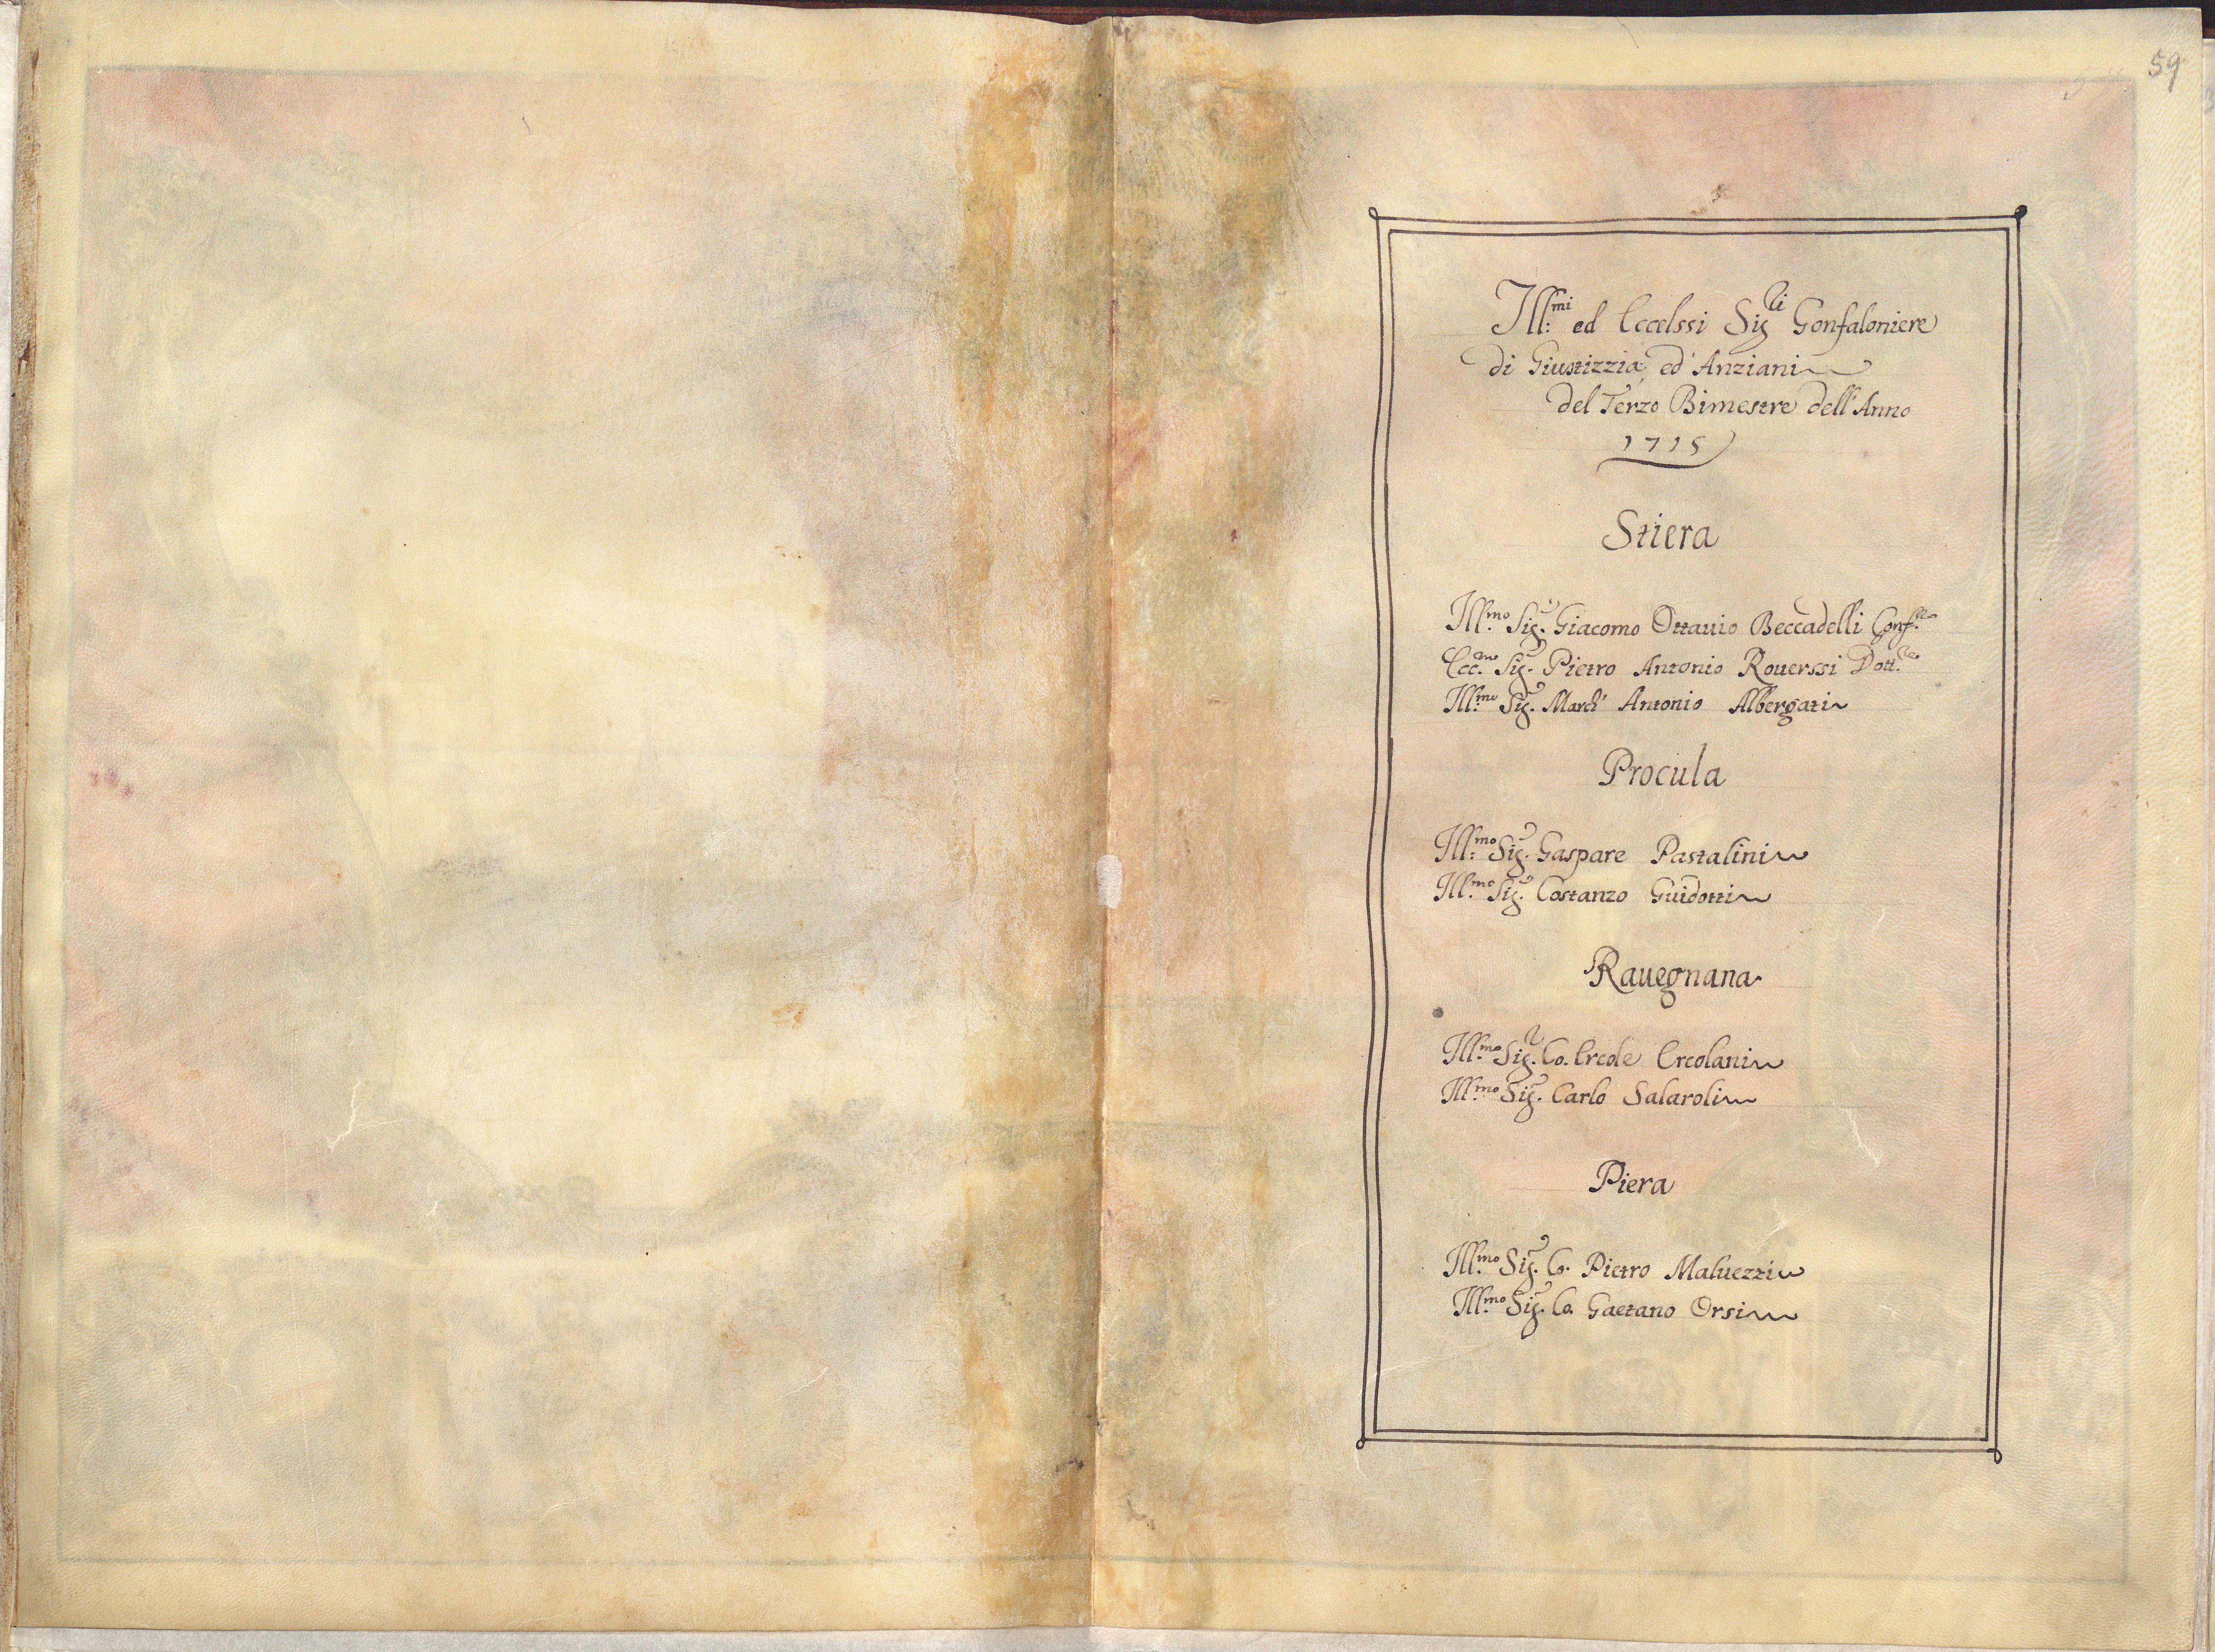 59
Ill:mi ed Eccelssi Sigri Gonfaloniere
di Giustizzia, ed Anziani
del Terzo Bimestre dell'Anno
1715
Stiera
Ill.mo Sig.r Giacomo Ottauio Beccadelli Gonf.re
Ecc.mo Sig.r Pietro Antonio Rouerssi Dott.re
Ill.mo Sig.r March' Antonio Albergati
Procula
Ill:mo Sig.r Gaspare Pastalini
Ill.mo Sig.r Costanzo Guidotti
Rauegnana
Ill.mo Sig.r Co. Ercole Ercolani
Ill.mo Sig.r Carlo Salaroli
Piera
Ill.mo Sig.r Co. Pietro Maluezzi
Ill.mo Sig.r Co. Gaetano Orsi